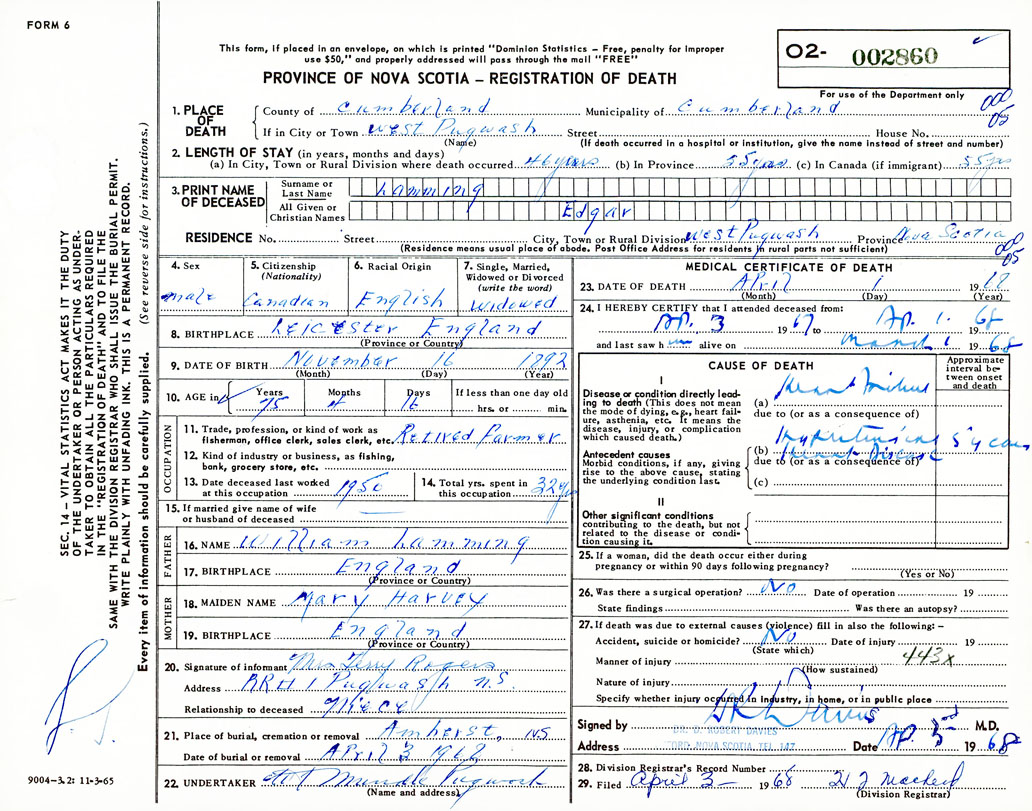 FORM 6
This form, if placed in an envelope, on which is printed "Dominion Statistics – Free, penalty for Improper
use $50," and properly addressed will pass through the mail "FREE"
PROVINCE OF NOVA SCOTIA – REGISTRATION OF DEATH
O2- 002860
For use of the Department only
SEC. 14 – VITAL STATISTICS ACT MAKES IT THE DUTY
OF THE UNDERTAKER OR PERSON ACTING AS UNDER-
TAKER TO OBTAIN ALL THE PARTICULARS REQUIRED
IN THE "REGISTRATION OF DEATH" AND TO FILE THE
SAME WITH THE DIVISION REGISTRAR WHO SHALL ISSUE THE BURIAL PERMIT.
WRITE PLAINLY WITH UNFADING INK. THIS IS A PERMANENT RECORD.
Every item of information should be carefully supplied. (See reverse side for instructions.)
1. PLACE OF DEATH
County of Cumberland Municipality of Cumberland
If in City or Town West Pugwash Street House No.
(Name) (If death occurred in a hospital or institution, give the name instead of street and number)
2. LENGTH OF STAY (in years, months and days)
(a) In City, Town or Rural Division where death occurred 46 years (b) In Province 55 yrs (c) In Canada (if immigrant) 55 yrs
3. PRINT NAME OF DECEASED
Surname or Last Name Lamming
All Given or Christian Names Edgar
RESIDENCE No. Street City, Town or Rural Division West Pugwash Province Nova Scotia
(Residence means usual place of abode. Post Office Address for residents in rural parts not sufficient)
4. Sex male
5. Citizenship (Nationality) Canadian
6. Racial Origin English
7. Single, Married, Widowed or Divorced (write the word) Widowed
8. BIRTHPLACE Leicester England
(Province or Country)
9. DATE OF BIRTH November 16 1892
(Month) (Day) (Year)
10. AGE in Years 75 Months 4 Days 16 If less than one day old hrs. or min.
OCCUPATION
11. Trade, profession, or kind of work as fisherman, office clerk, sales clerk, etc. Retired Farmer
12. Kind of industry or business, as fishing, bank, grocery store, etc.
13. Date deceased last worked at this occupation 1950
14. Total yrs. spent in this occupation 32 yrs
15. If married give name of wife or husband of deceased
FATHER
16. NAME William Lamming
17. BIRTHPLACE England
(Province or Country)
MOTHER
18. MAIDEN NAME Mary Harvey
19. BIRTHPLACE England
(Province or Country)
20. Signature of informant Mrs Terry Rogers
Address RR#1 Pugwash N.S.
Relationship to deceased Niece
21. Place of burial, cremation or removal Amherst, NS
Date of burial or removal April 3 1968
22. UNDERTAKER Mundle Pugwash
(Name and address)
9004-3.2: 11-3-65
MEDICAL CERTIFICATE OF DEATH
23. DATE OF DEATH April 1 1968
(Month) (Day) (Year)
24. I HEREBY CERTIFY that I attended deceased from:
Ap. 3 1967 to Ap. 1. 1968
and last saw him alive on March 1 1968
CAUSE OF DEATH
Approximate interval between onset and death
I
Disease or condition directly leading to death (This does not mean the mode of dying, e.g., heart failure, asthenia, etc. It means the disease, injury, or complication which caused death.)
(a) Heart Failure
due to (or as a consequence of)
Antecedent causes
Morbid conditions, if any, giving rise to the above cause, stating the underlying condition last.
(b) Hypertensive Heart Disease 5 years
due to (or as a consequence of)
(c)
II
Other significant conditions
contributing to the death, but not related to the disease or condition causing it.
25. If a woman, did the death occur either during
pregnancy or within 90 days following pregnancy?
(Yes or No)
26. Was there a surgical operation? No Date of operation 19
State findings Was there an autopsy?
27. If death was due to external causes (violence) fill in also the following: –
Accident, suicide or homicide? No Date of injury 19
(State which)
Manner of injury 443X
(How sustained)
Nature of injury
Specify whether injury occurred in Industry, in home, or in public place
Signed by M.D.
DR. D. ROBERT DAVIES
Address OXFORD, NOVA SCOTIA, TEL. 147 Date Ap. 3rd 1968
28. Division Registrar's Record Number 6
29. Filed April 3 – 1968
(Division Registrar)